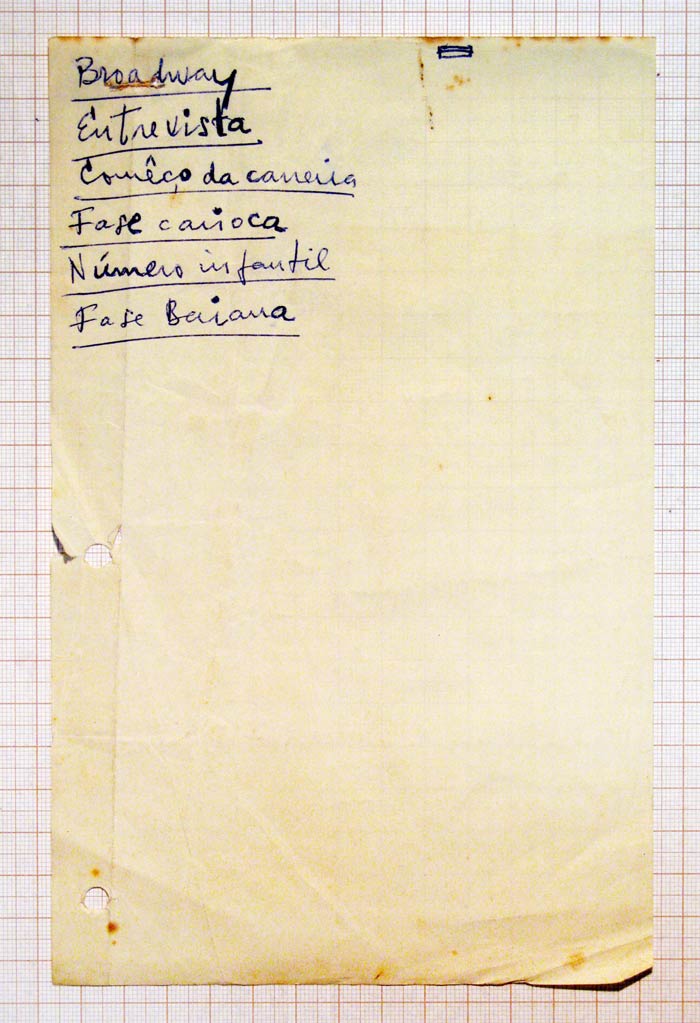 Broadway
Entrevista
Comêço da carreira
Fase carioca
Número infantil
Fase Baiana